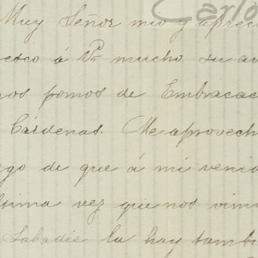 Carlo
Muy Señor mio y aprec
esco á V. mucho su av
nos pomos de Embraca
Cárdenas. Me aprovech
go de que á mi venid
sima vez que nos vim
Sabadie la hay tambi